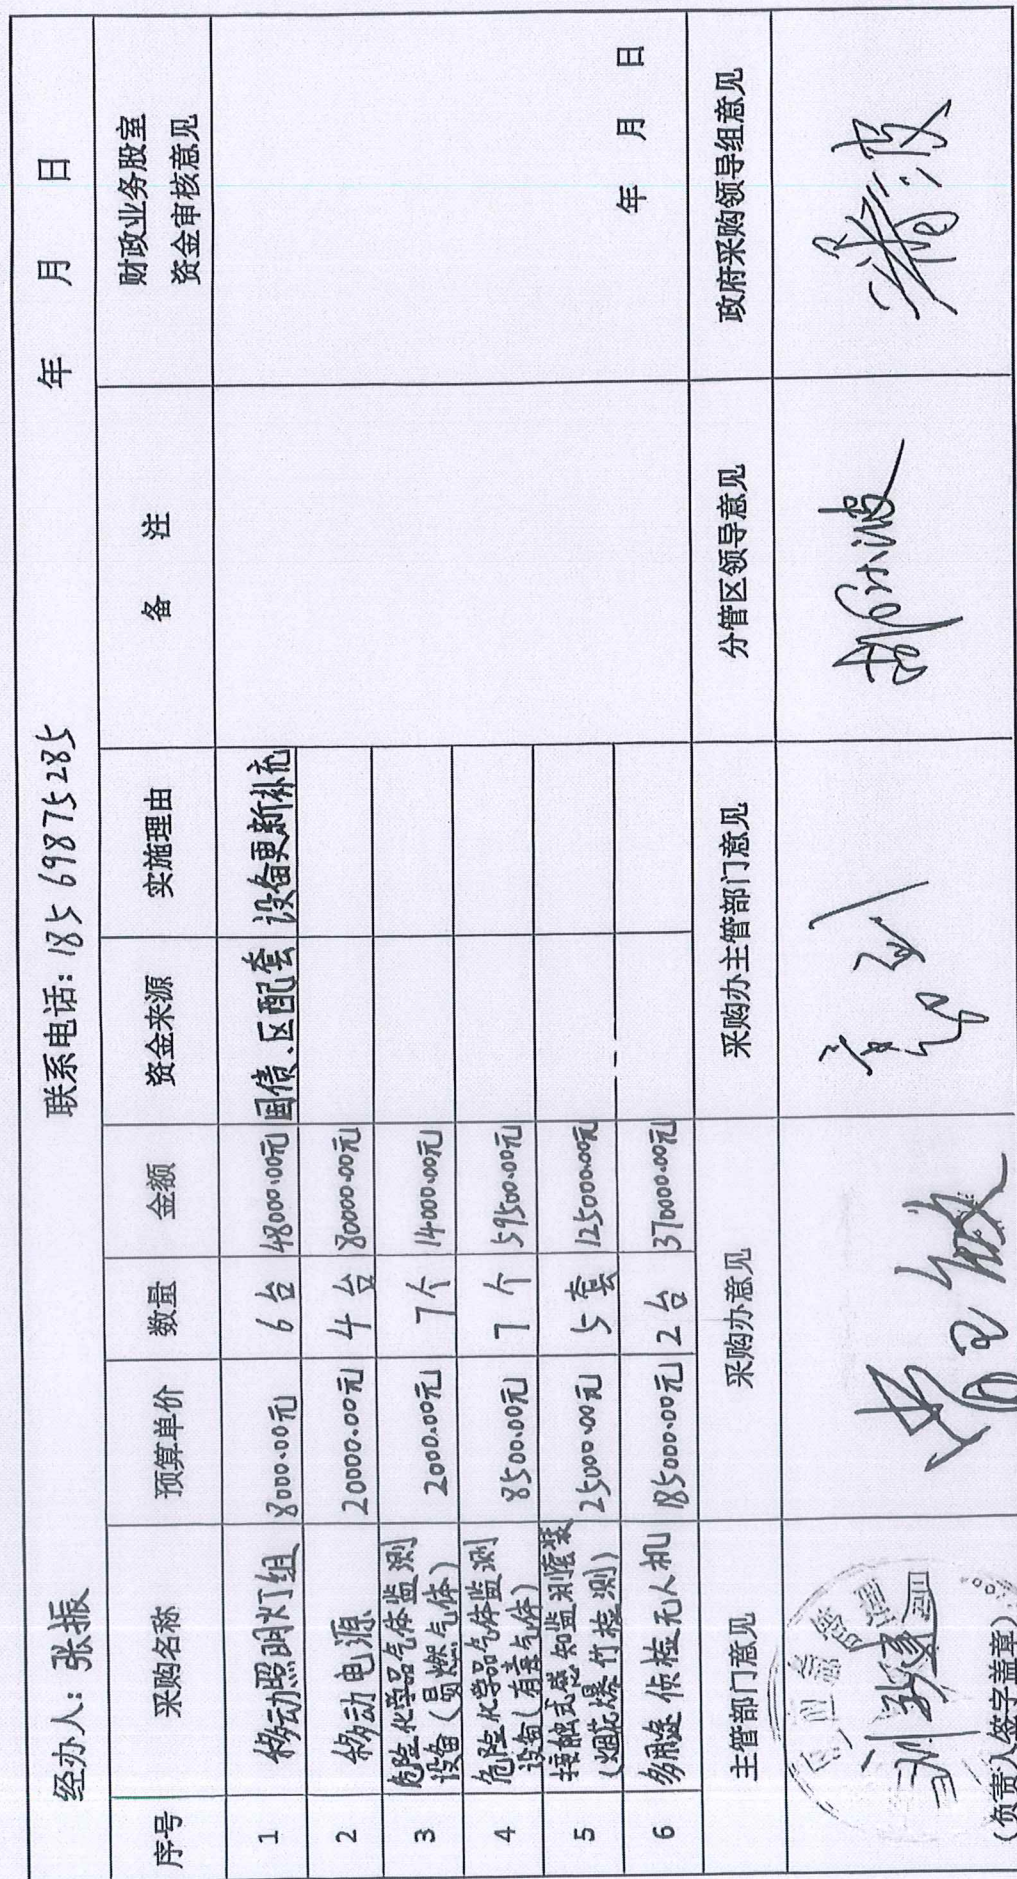 经办人：张振 联系电话：185 6987 5285 年 月 日
序号 采购名称 预算单价 数量 金额 资金来源 实施理由 备 注 财政业务股室
资金审核意见
1 移动照明灯组 8000.00元 6台 48000.00元 国债、区配套 设备更新补充
2 移动电源 20000.00元 4台 80000.00元
3 危险化学品气体监测
设备（易燃气体） 2000.00元 7个 14000.00元
4 危险化学品气体监测
设备（有毒气体） 8500.00元 7个 59500.00元
5 接触式感知监测套装
（烟花爆竹检测） 25000.00元 5套 125000.00元
6 多用途侦检无人机 185000.00元 2台 370000.00元
年 月 日
主管部门意见 采购办意见 采购办主管部门意见 分管区领导意见 政府采购领导组意见
（负责人签字盖章）